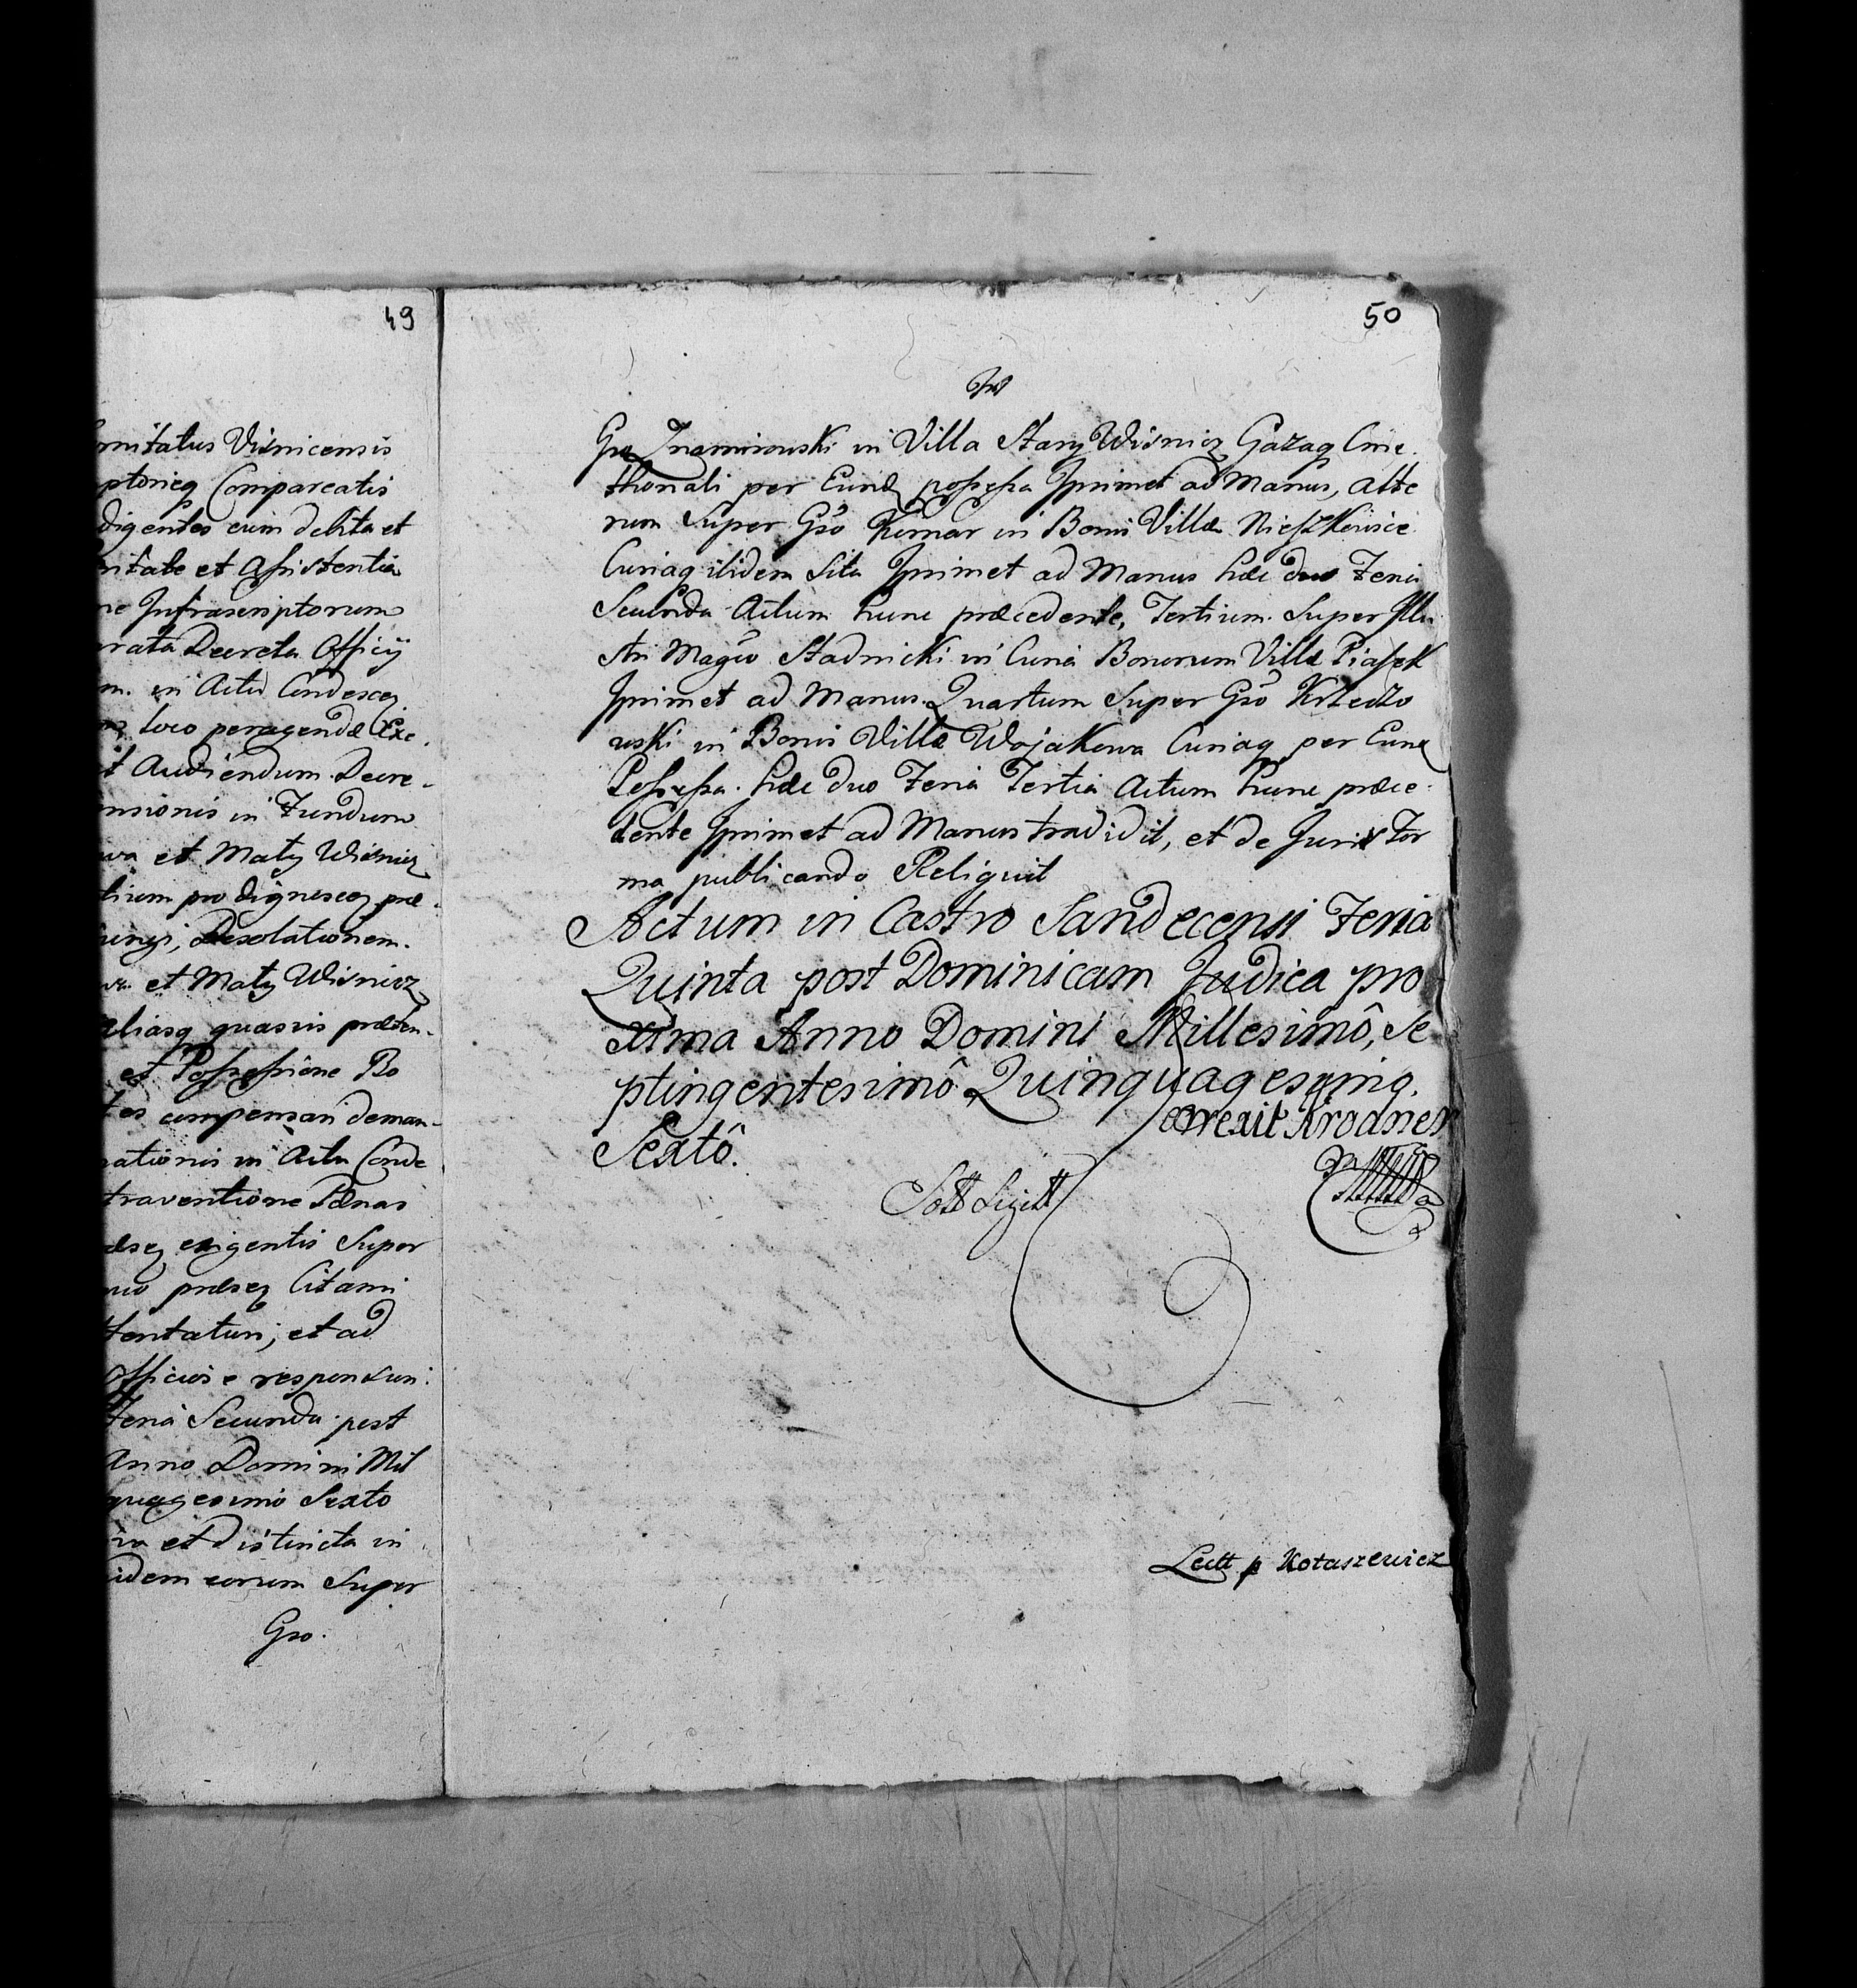 49
omitatus Visnicensis
ptorieq Compareatis
digentes eum debita et
ritate et Assistentia
ne Infrascriptorum
rata Decreta Officij
m. in Actu Condescen
loco peragendæ Exe.
t Audiendum Decre-
nsionis in Fundum
wa et Maly Wisnicz
tium pro dignoscen præ.
iungi, Desolationem.
wa et Maly Wisnicz
aliasq quasvis præten-
et Possessione Bo
tes compensari deman-
rationis in Actu Conde
traventione Pænas
exigentis Super
præsen Citami
tentaturi, et ad
officiose responsuri.
Feria Secunda post
Anno Domini Mil
quagesimo Sexto
va et distincta in
idem eorum Super
Gso.
50
Gso Znamirouski in Villa Stary Wisnicz Gazaq Cme.
thonali per Eund possessa Ipsimet ad Manus, Alte
rum Super Gso Komar in Bonis Villæ Nieszkowice
Curiaq ibidem Sita Ipsimet ad Manus hæc duo Feria
Secunda Actum hunc præcedente, Tertium. Super Illu
stri Magco Stadnicki in Curia Bonorum Villæ Piasek
Ipsimet ad Manus. Quartum Super Gso Krzeczo
wski in Bonis Villæ Wojakowa Curiaq per Eund
Possessa. hæc duo Feria Tertia Actum hunc præce.
dente Ipsimet ad Manus tradidit, et de Juris For
ma publicando Reliquit
Actum in Castro Sandecensi Feria
Quinta post Dominicam Judica pro
xima Anno Domini Millesimô, Se
ptingentesimô Quinquagesimo.
Sextô.
correxit Kroaner
Sott Legitt
Lectt p Kotaszewicz